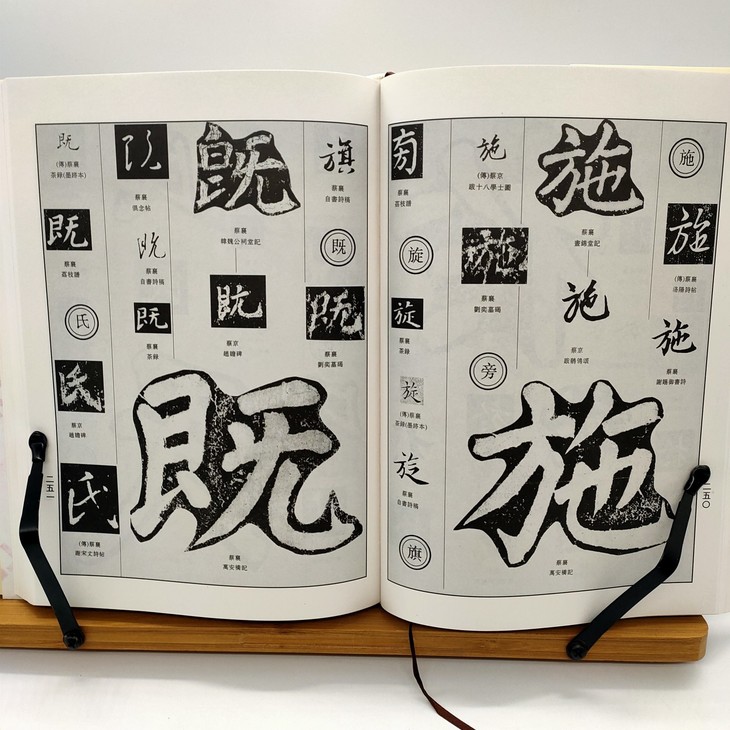 施
施
蔡襄
洛陽詩帖
施
蔡襄
謝賜御書詩
施
蔡襄
晝錦堂記
施
蔡京
跋鶺鴒頌
施
蔡襄
萬安橋記
施
(傳)蔡京
跋十八學士圖
施
蔡襄
劉奕墓碣
旁
旁
蔡襄
荔枝譜
旋
旋
蔡襄
茶錄
旋
(傳)蔡襄
茶錄(墨拓本)
旋
蔡襄
自書詩稿
旗
二五〇
旗
蔡襄
自書詩稿
既
既
蔡襄
劉奕墓碣
既
蔡襄
韓魏公祠堂記
既
蔡京
趙懿碑
既
蔡襄
萬安橋記
既
蔡襄
既
蔡襄
自書詩稿
既
蔡襄
茶錄
既
(傳)蔡襄
茶錄(墨拓本)
既
蔡襄
荔枝譜
氏
氏
蔡京
趙懿碑
氏
(傳)蔡襄
謝宋文詩帖
二五一